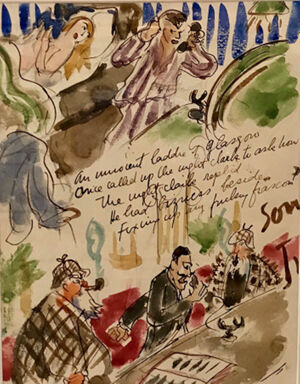 An innocient laddie of Glasgow
Once called up the night clark to ask how
The night-clark replied
He had bizness beside
Fixing up any fiasco
Son